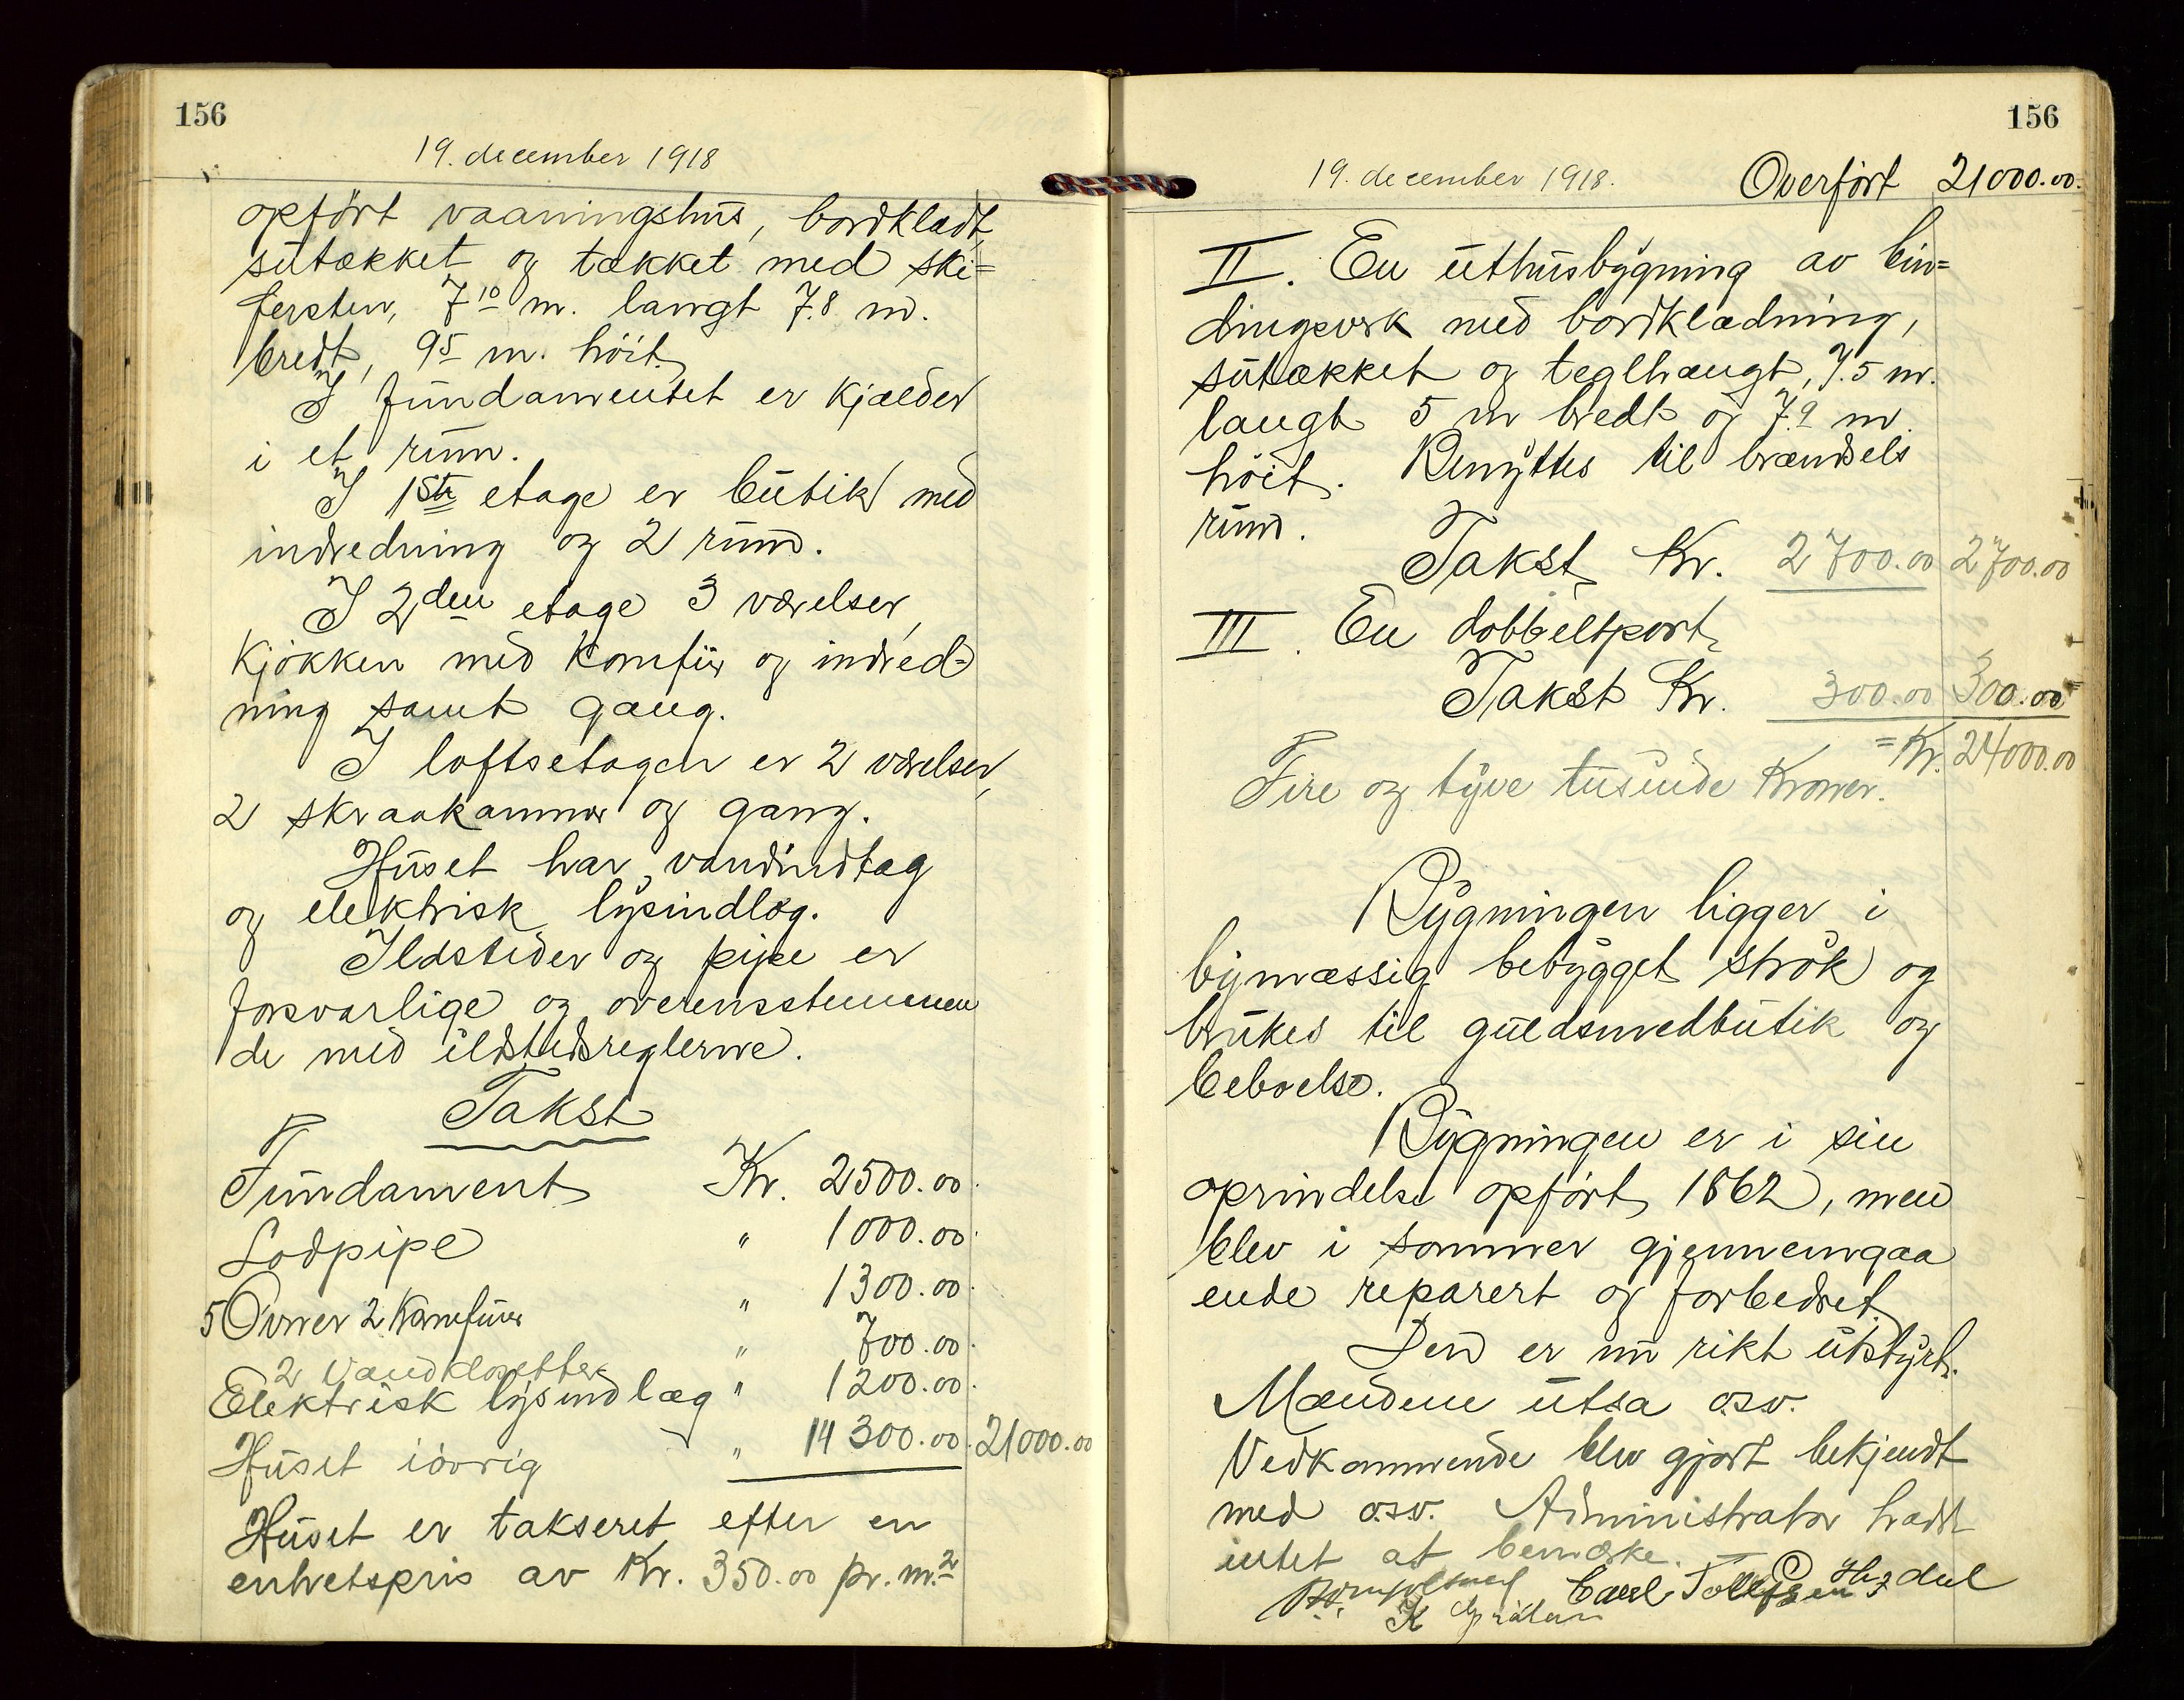 156
19. december 1918
opført vaaningshus, bordklædt,
sutækket og tækket med ski=
fersten, 7.10 m. langt 7.8 m.
bredt, 9.5 m. høit.
I fundamentet er kjælder
i et rum.
I 1ste etage er butik med
indredning og 2 rum.
I 2den etage 3 værelser,
kjøkken med komfur og indred-
ning samt gang.
I loftsetagen er 2 værelser,
2 skraakammer og gang.
Huset har vandindtag
og elektrisk lysindlæg.
Ildsteder og pipe er
forsvarlige og overensstemmen
de med ildstedsreglerne.
Takst
Fundament Kr. 2500.00
Lodpipe " 1000.00
5 Ovner 2 Komfurer " 1300.00
2 Vandklosetter " 700.00
Elektrisk lysindlæg " 1200.00
Huset iøvrig " 14300.00 21000.00
Huset er takseret efter en
enhetspris av Kr. 350.00 pr. m.2
156
19. december 1918. Overført 21000.00
II. En uthusbygning av bin=
dingsverk med bordklædning,
sutækket og teglhængt, 7.5 m.
langt 5 m bredt og 7.9 m.
høit. Benyttes til brændsels
rum.
Takst Kr. 2700.00 2700.00
III. En dobbeltport,
Takst Kr. 300.00 300.00
= Kr. 24000.00
Fire og tyve tusinde Kroner.
Bygningen ligger i
bymæssig bebygget strøk og
brukes til guldsmedbutik og
beboelse.
Bygningen er i sin
oprindelse opført 1862, men
blev i sommer gjennemgaa
ende reparert og forbedret.
Den er nu rikt utstyrt.
Mændene utsa o.s.v.
Vedkommende blev gjort bekjendt
med o.s.v. Administrator hadde
intet at bemerke.
Carl Tollefsen
K